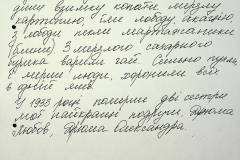 дину взимку копати мерзлу
картоплю, їли лободу, акацію,
з лободи пекли маторжаники
(блини). З мерзлого сахарного
буряка варили чай. Сильно пухли,
і мерли люди, хоронили всіх
в одній ямі.
У 1933 році померли дві сестри
мої найкращі подруги, Дрюма
Любов, Дрюма Олександра.